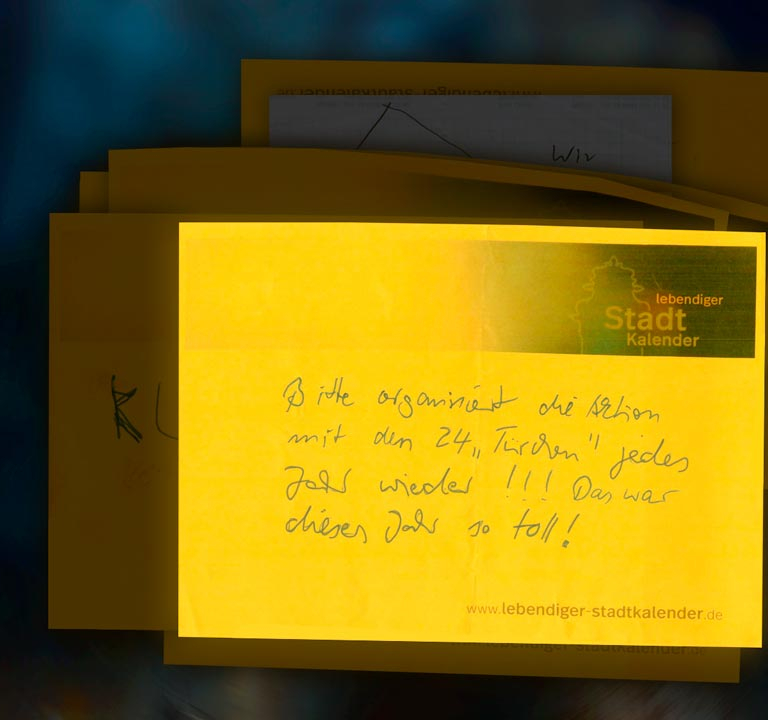 www.lebendiger-stadtkalender.de
Wir
lebendiger
Stadt
Kalender
KL
Bitte organisiert die Aktion
mit den 24 „Türchen" jedes
Jahr wieder !!! Das war
dieses Jahr so toll!
www.lebendiger-stadtkalender.de
www.lebendiger-stadtkalender.de